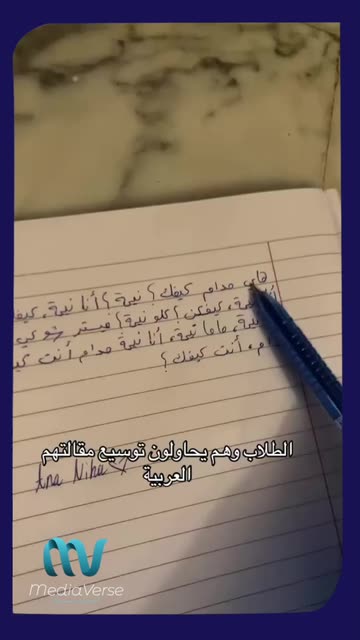 هاي مدام كيفك؟ نيحة؟ أنا نيحة، كيف
نيحة، كيفكن؟ كلو نيحة؟ مستر شو
ماما نيحة، أنا نيحة مدام أنت
أنت كيفك؟
الطلاب وهم يحاولون توسيع مقالتهم
العربية
Ana Niha
MediaVerse